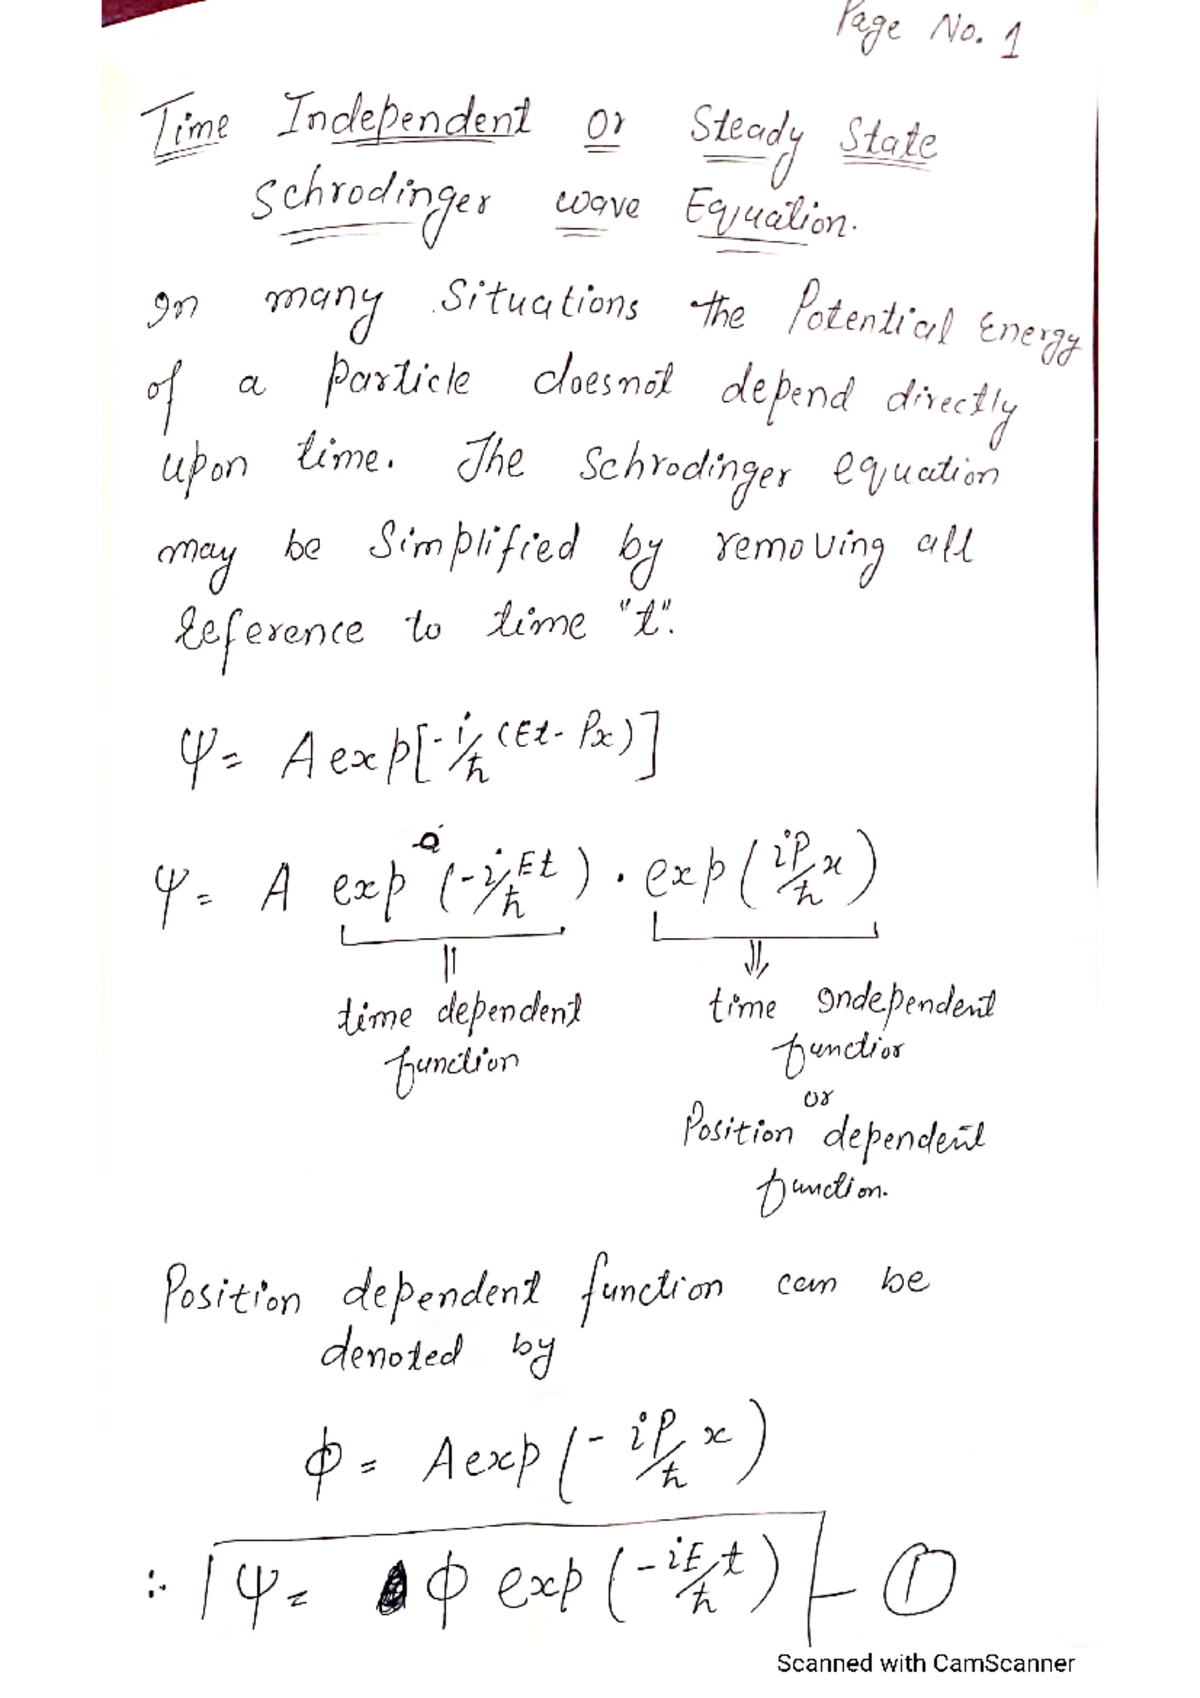 Page No. 1
Time Independent or Steady State
Schrodinger wave Equation.
In many Situations the Potential Energy
of a Particle doesnot depend directly
upon time. The Schrodinger equation
may be Simplified by removing all
Reference to time "t".
Ψ= A exp[-i/ħ (Et-Px)]
Ψ= A exp (-i/ħ Et) . exp(iP/ħ x)
time dependent
function
time Independent
function
or
Position dependent
function.
Position dependent function can be
denoted by
ϕ= A exp(- iP/ħ x)
∴ Ψ= ϕ exp(-iE/ħ t) - ①
Scanned with CamScanner